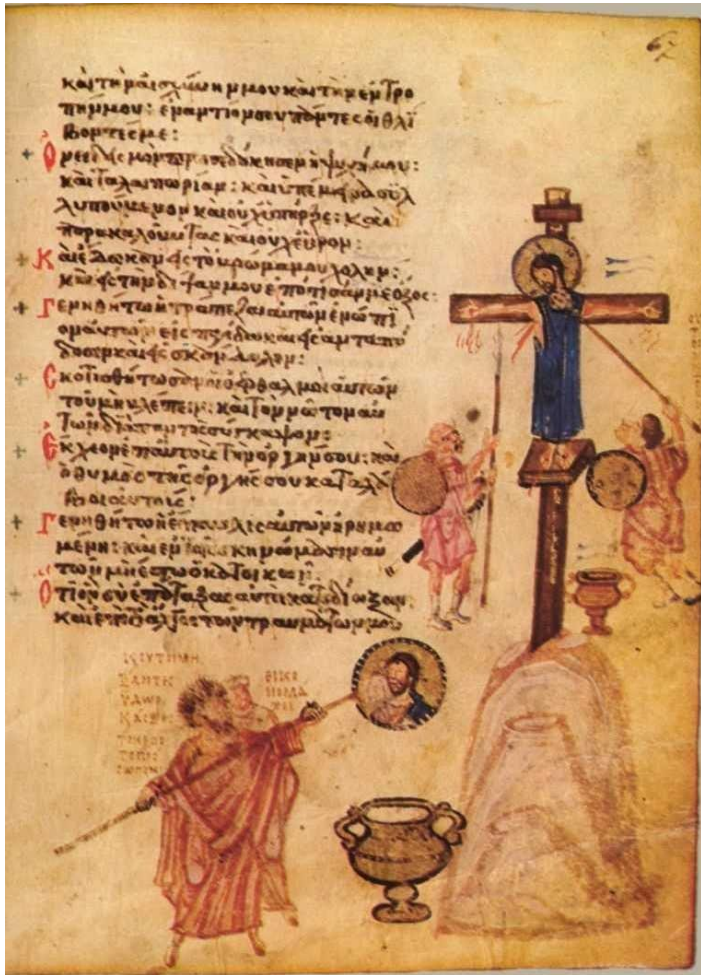 67
καὶ τὴν αἰσχύνην μου καὶ τὴν ἐντρο
πήν μου: ἐναντίον σου πάντες οἱ θλί
βοντές με:
Ὀνειδισμὸν προσεδόκησεν ἡ ψυχή μου:
καὶ ταλαιπωρίαν: καὶ ὑπέμεινα συλ
λυπούμενον καὶ οὐχ ὑπῆρξε: Καὶ
παρακαλοῦντας καὶ οὐχ εὗρον:
Καὶ ἔδωκαν εἰς τὸ βρῶμα μου χολὴν:
καὶ εἰς τὴν δίψαν μου ἐπότισάν με ὄξος:
Γενηθήτω ἡ τράπεζα αὐτῶν ἐνώπι
ον αὐτῶν εἰς παγίδα καὶ εἰς ἀνταπό
δοσιν καὶ εἰς σκάνδαλον:
Σκοτισθήτωσαν οἱ ὀφθαλμοὶ αὐτῶν
τοῦ μὴ βλέπειν: καὶ τὸν νῶτον αὐ
τῶν διὰ παντὸς σύγκαμψον:
Ἔκχεον ἐπ' αὐτοὺς τὴν ὀργήν σου: καὶ
ὁ θυμὸς τῆς ὀργῆς σου καταλά
βοι αὐτούς:
Γενηθήτω ἡ ἔπαυλις αὐτῶν ἠρημω
μένη: καὶ ἐν τοῖς σκηνώμασιν αὐ
τῶν μὴ ἔστω ὁ κατοικῶν:
Ὅτι ὃν σὺ ἐπάταξας αὐτοὶ κατεδίωξαν:
καὶ ἐπὶ τὸ ἄλγος τῶν τραυμάτων μου
ΥΔΩΡ